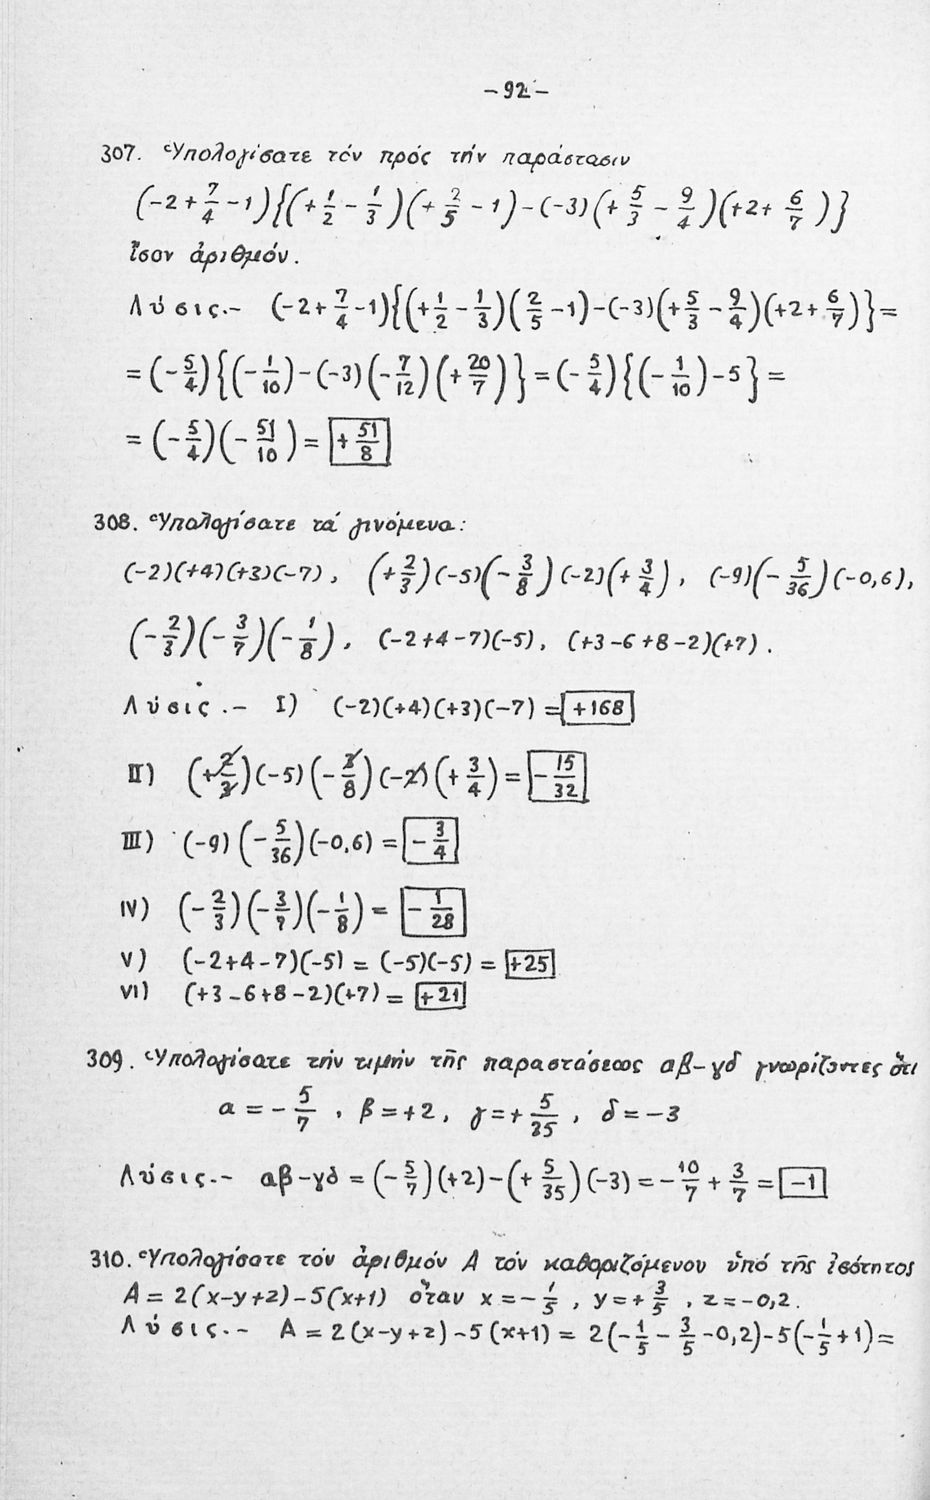 -92-
307. Ὑπολογίσατε τόν πρός τήν παράστασιν
(-2+7/4-1){(+1/2-1/3)(+2/5-1)-(-3)(+5/3-9/4)(+2+6/7)}
ἴσον ἀριθμόν.
Λύσις.- (-2+7/4-1){(+1/2-1/3)(2/5-1)-(-3)(+5/3-9/4)(+2+6/7)}=
=(-5/4){(-1/10)-(-3)(-7/12)(+20/7)}=(-5/4){(-1/10)-5}=
=(-5/4)(-51/10)=+51/8
308. Ὑπολογίσατε τά γινόμενα:
(-2)(+4)(+3)(-7), (+2/3)(-5)(-3/8)(-2)(+3/4), (-9)(-5/36)(-0,6),
(-2/3)(-3/7)(-1/8), (-2+4-7)(-5), (+3-6+8-2)(+7).
Λύσις.- I) (-2)(+4)(+3)(-7)=+168
II) (+2/3)(-5)(-3/8)(-2)(+3/4)=-15/32
III) (-9)(-5/36)(-0,6)=-3/4
IV) (-2/3)(-3/7)(-1/8)=-1/28
V) (-2+4-7)(-5)=(-5)(-5)=+25
VI) (+3-6+8-2)(+7)=+21
309. Ὑπολογίσατε τήν τιμήν τῆς παραστάσεως αβ-γδ γνωρίζοντες ὅτι
α=-5/7, β=+2, γ=+5/35, δ=-3
Λύσις.- αβ-γδ=(-5/7)(+2)-(+5/35)(-3)=-10/7+3/7=-1
310. Ὑπολογίσατε τόν ἀριθμόν Α τόν καθοριζόμενον ὑπό τῆς ἰσότητος
A=2(x-y+z)-5(x+1) ὅταν x=-1/5, y=+3/5, z=-0,2.
Λύσις.- A=2(x-y+z)-5(x+1)=2(-1/5-3/5-0,2)-5(-1/5+1)=